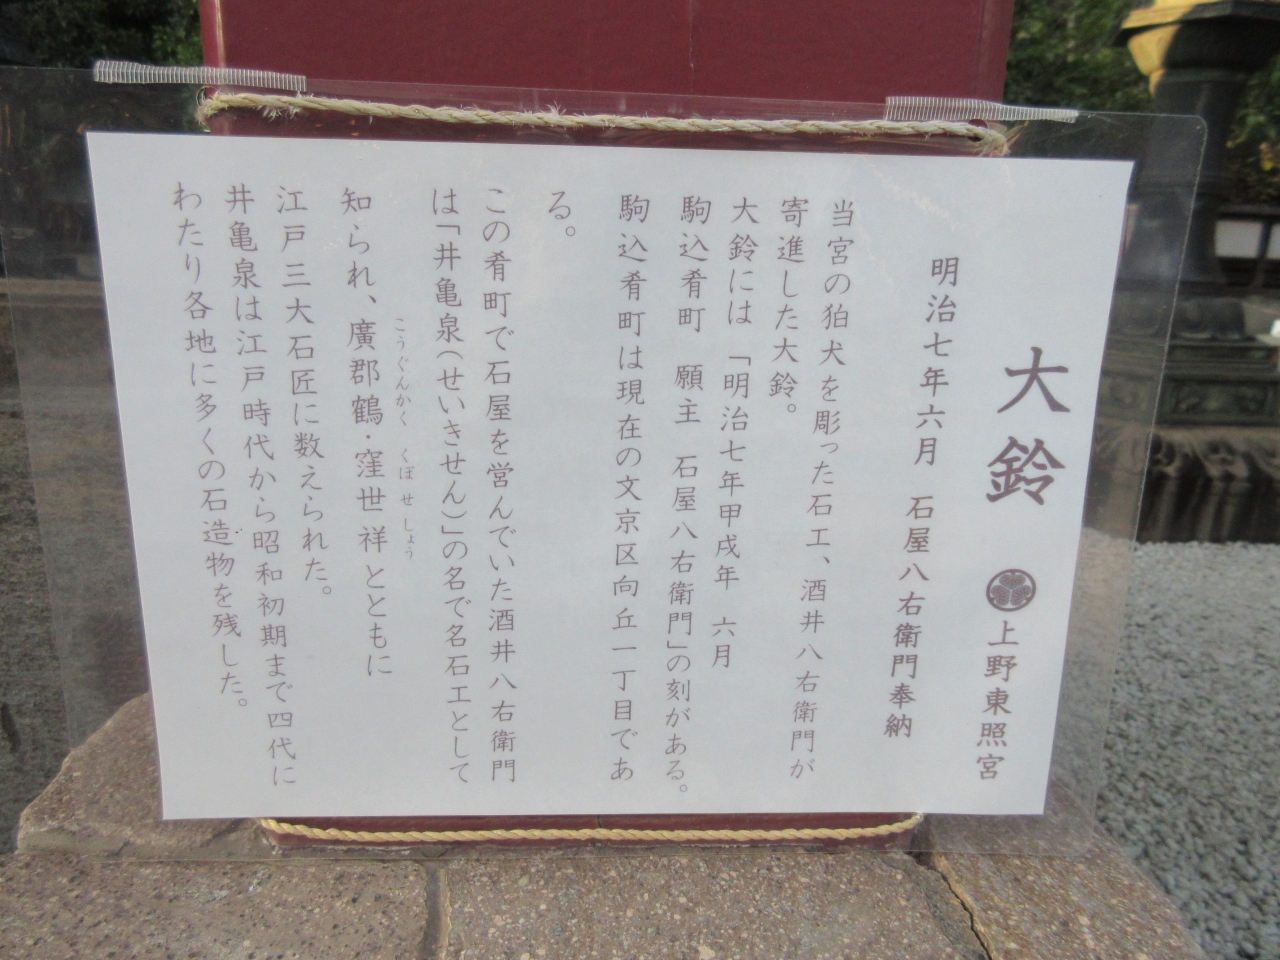 大鈴 上野東照宮
明治七年六月 石屋八右衛門奉納
当宮の狛犬を彫った石工、酒井八右衛門が
寄進した大鈴。
大鈴には「明治七年甲戌年 六月
駒込肴町 願主 石屋八右衛門」の刻がある。
駒込肴町は現在の文京区向丘一丁目であ
る。
この肴町で石屋を営んでいた酒井八右衛門
は「井亀泉(せいきせん)」の名で名石工として
こうぐんかく くぼ せ しょう
知られ、廣郡鶴・窪世祥とともに
江戸三大石匠に数えられた。
井亀泉は江戸時代から昭和初期まで四代に
わたり各地に多くの石造物を残した。